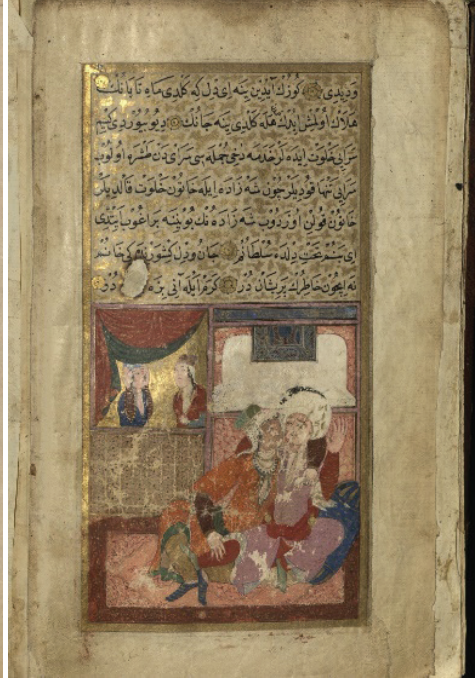 و دیدی کوزك آیدین ینه ای دل که کلدی ماه تابانك
هلاك اولمش ایدك هله کلدی ینه جانك دیو سوردی کیم
سرایی خلوت ایده لر خدمه دخی جمله سی سرای دن طشره اولوب
سرایی تنها قودیلر چون شه زاده ایله خاتون خلوت قالدیلر
خاتون قولن اوزردوب شه زاده نك بوینینه براغوب ایتدی
ای بنم تخت دلده سلطانم جان و دل کشورنك خانم
نه ایچون خاطرك پریشان در کرم ایله آنی